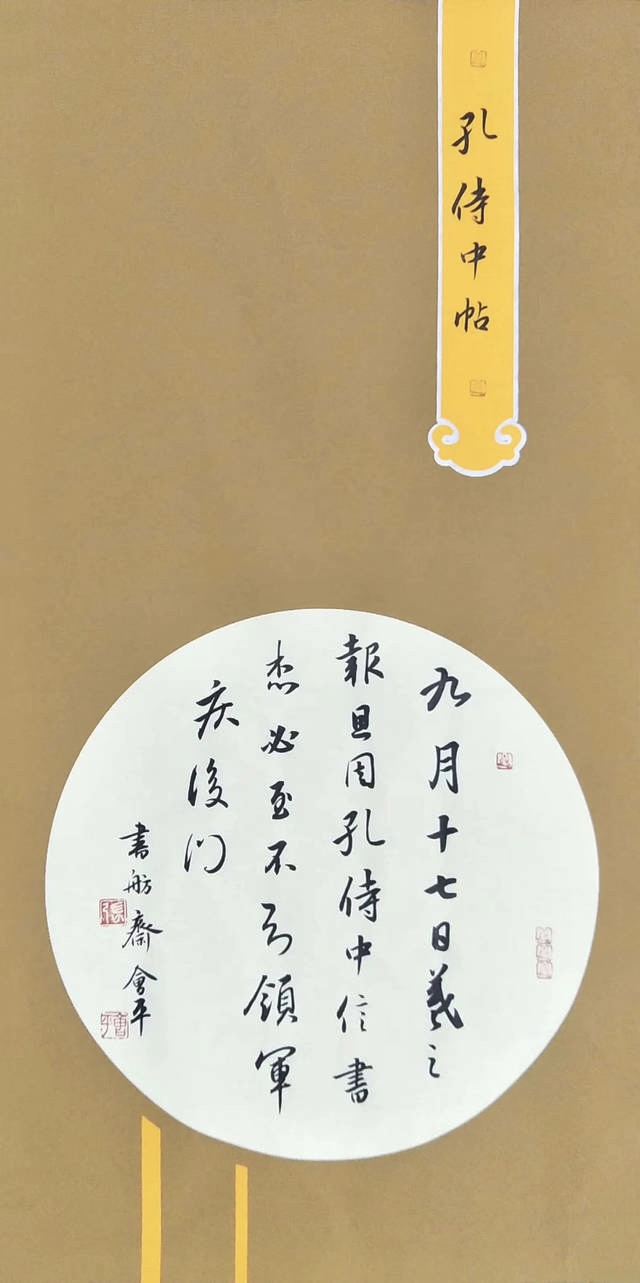 孔侍中帖
九月十七日羲之
報且因孔侍中信書
想必至不知領軍
疾後問
書舫齋會平